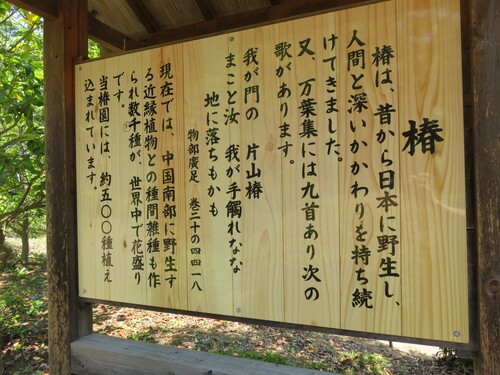 椿
椿は、昔から日本に野生し、
人間と深いかかわりを持ち続
けてきました。
又、万葉集には九首あり次の
歌があります。
我が門の 片山椿
まこと汝 我が手觸れなな
地に落ちもかも
物部廣足 巻二十の四四一八
現在では、中国南部に野生す
る近縁植物との種間雑種も作
られ数千種が、世界中で花盛り
です。
当椿園には、約五〇〇種植え
込まれています。